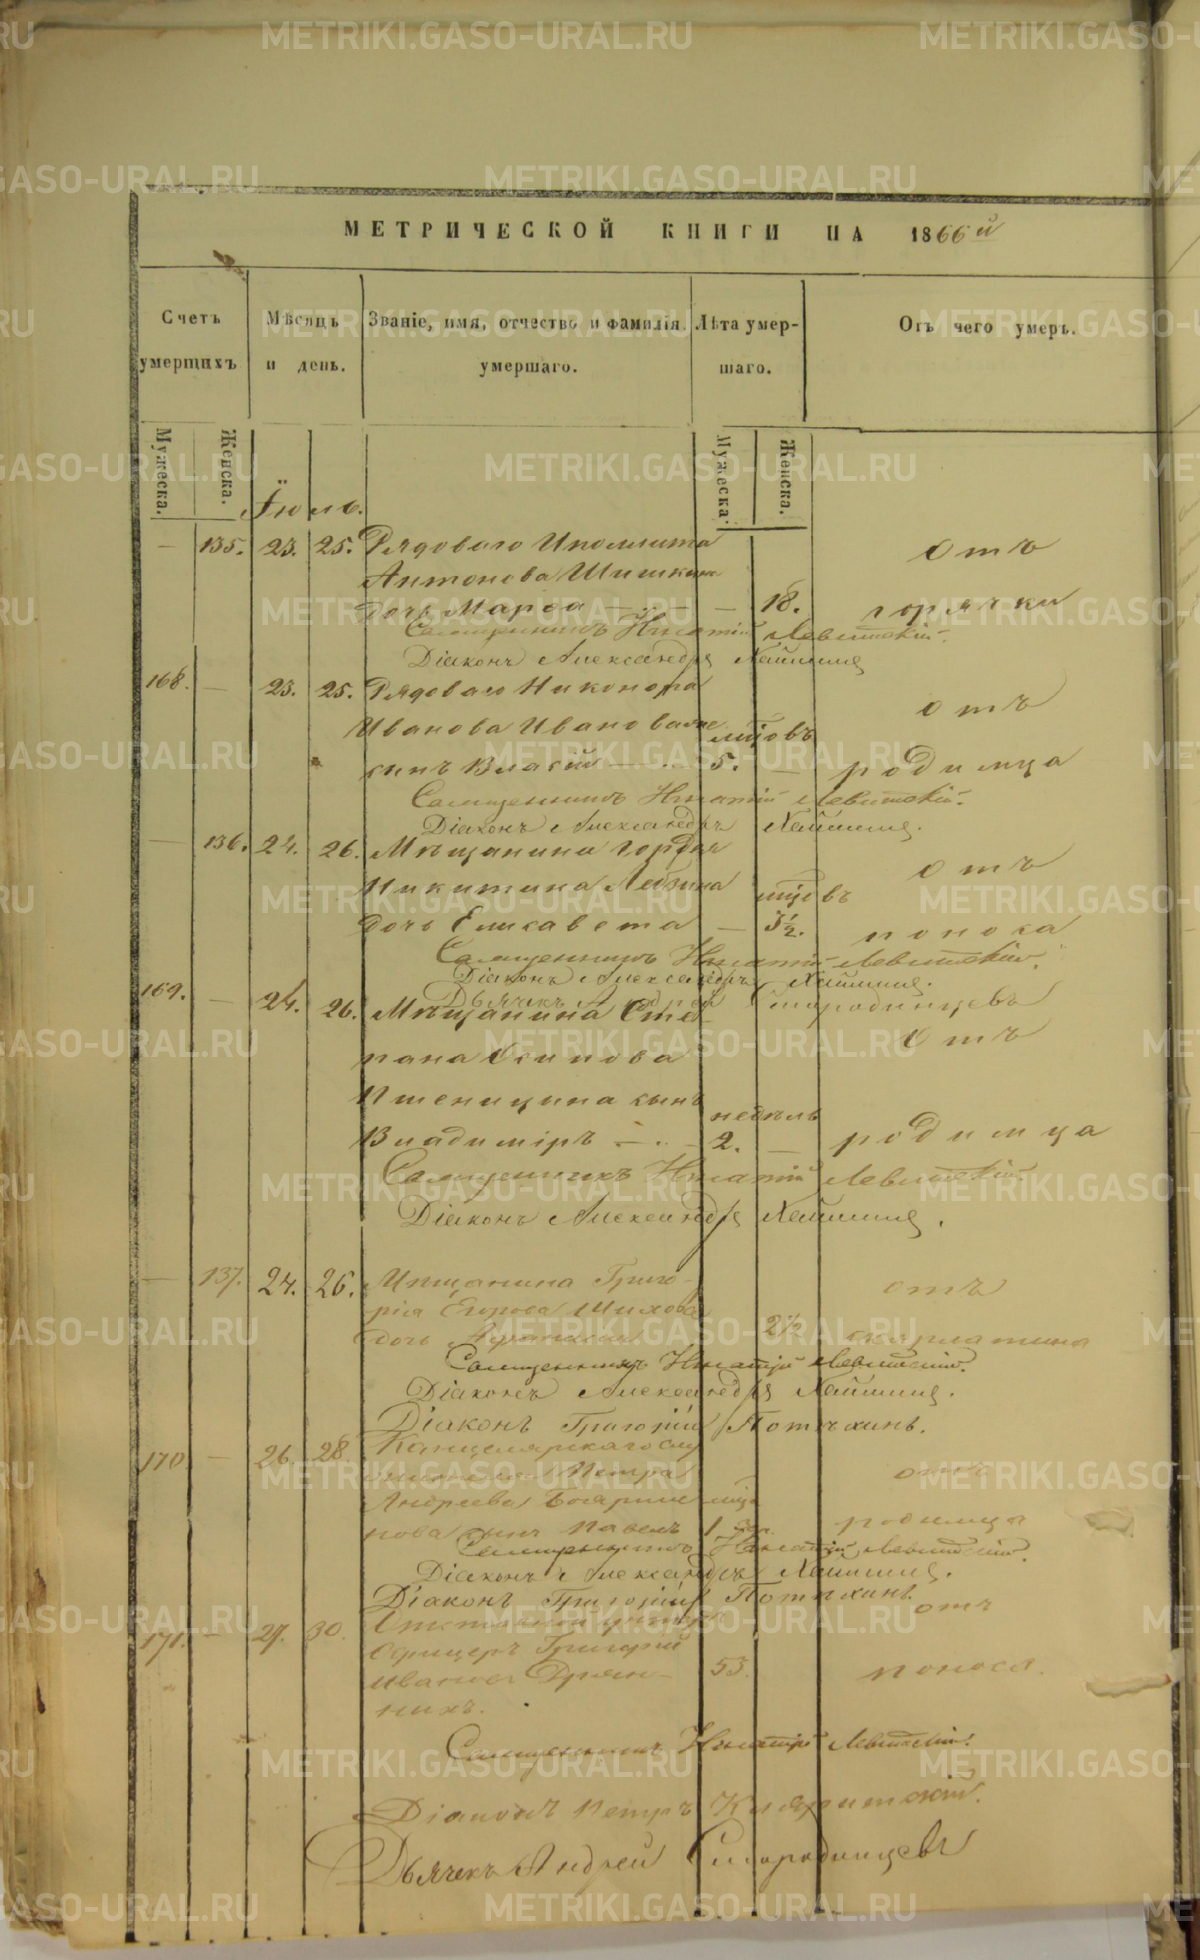 МЕТРИЧЕСКОЙ КНИГИ НА 1866й
Счетъ умершихъ
Мѣсяцъ и день.
Званіе, имя, отчество и фамилія умершаго.
Лѣта умершаго.
Отъ чего умеръ.
Мужеска.
Женска.
Мужеска.
Женска.
Іюль.
— 135. 23. 25. Рядоваго Иполлита Отъ
Антонова Шишкина
дочь Марѳа — 18. горячки
Священникъ Игнатій Левитскій.
Діаконъ Александръ
168. — 23. 25. Рядоваго Никонора отъ
Иванова Иванова мцовъ
сынъ Власій — 5. — родимца
Священникъ Игнатій Левитскій.
Діаконъ Александръ
— 136. 24. 26. Мѣщанина Гордѣя отъ
Никитина мцовъ
дочь Елисавета — 3½. поноса
Священникъ Игнатій Левитскій.
Діаконъ Александръ
Дьячекъ Андрей Смородинцевъ
169. — 24. 26. Мѣщанина Сте- Отъ
пана Осипова
Пшеницина сынъ недѣль
Владиміръ — 2. — родимца
Священникъ Игнатій Левитскій.
Діаконъ Александръ
— 137. 24. 26. Мѣщанина Григо- отъ
рія Егорова Шихова
дочь 2½ скарлатина
Священникъ Игнатій Левитскій.
Діаконъ Александръ
Діаконъ Григорій Потѣхинъ.
170 — 26. 28. Канцелярскаго слу
жителя Петра отъ
Андреева мцъ
нова сынъ Павелъ 1 родимца
Священникъ Игнатій Левитскій.
Діаконъ Александръ
Діаконъ Григорій Потѣхинъ.
171. — 27. 30. Отставной унтеръ отъ
Офицеръ Григорій
Ивановъ 53. поноса.
ныхъ.
Священникъ Игнатій Левитскій.
Діаконъ Петръ
Дьячекъ Андрей Смородинцевъ
METRIKI.GASO-URAL.RU